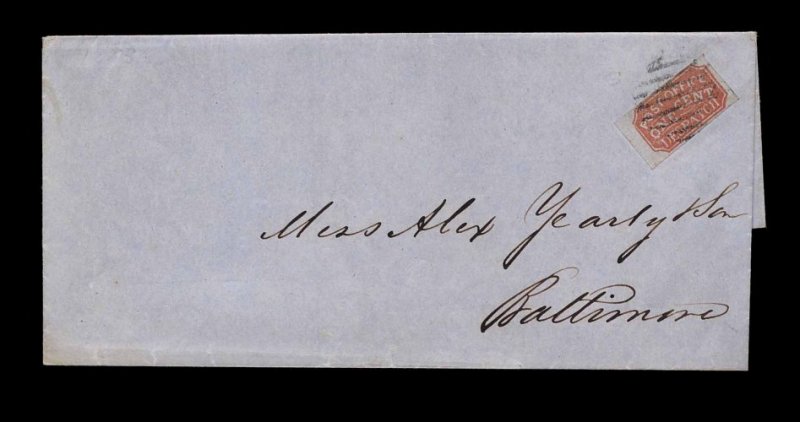 POST OFFICE
ONE CENT
DESPATCH
Mess Alex Yearly & Son
Baltimore